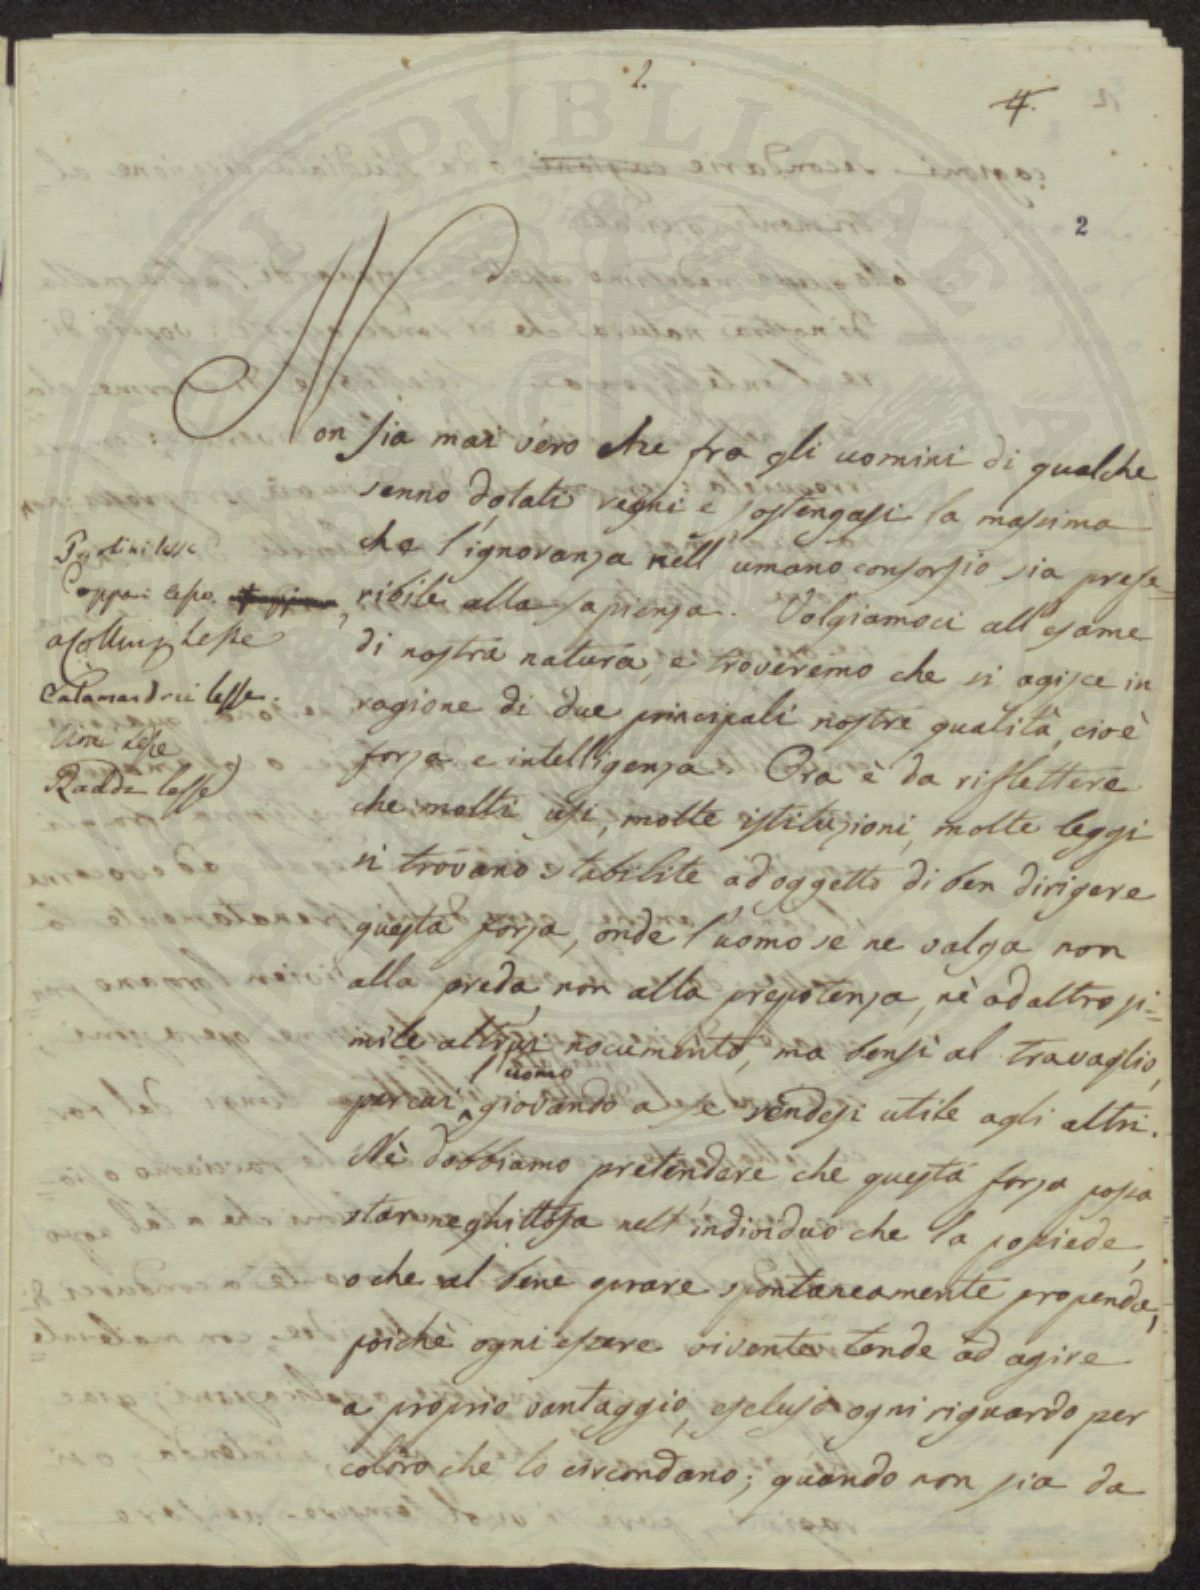 2.
4.
2
Non sia mai vero che fra gli uomini di qualche
senno dotati regni e sostengasi la massima
che l'ignoranza nell'umano consorzio sia prefe=
ribile alla sapienza. Volgiamoci all'esame
di nostra natura, e troveremo che si agisce in
ragione di due principali nostre qualità, cioè
forza e intelligenza. Ora è da riflettere
che molti usi, molte istituzioni, molte leggi
si trovano stabilite ad oggetto di ben dirigere
questa forza, onde l'uomo se ne valga non
alla preda, non alla prepotenza, nè ad altro si=
mile altrui nocumento, ma bensì al travaglio,
per cui l'uomo giovando a se rendesi utile agli altri.
Nè dobbiamo pretendere che questa forza possa
star neghittosa nell'individuo che la possiede,
o che al bene oprare spontaneamente propenda,
poichè ogni essere vivente tende ad agire
a proprio vantaggio, escluso ogni riguardo per
coloro che lo circondano; quando non sia da
lesse
Coppi lesse
aCollung lesse
Calamandrei lesse.
lesse
Raddi lesse